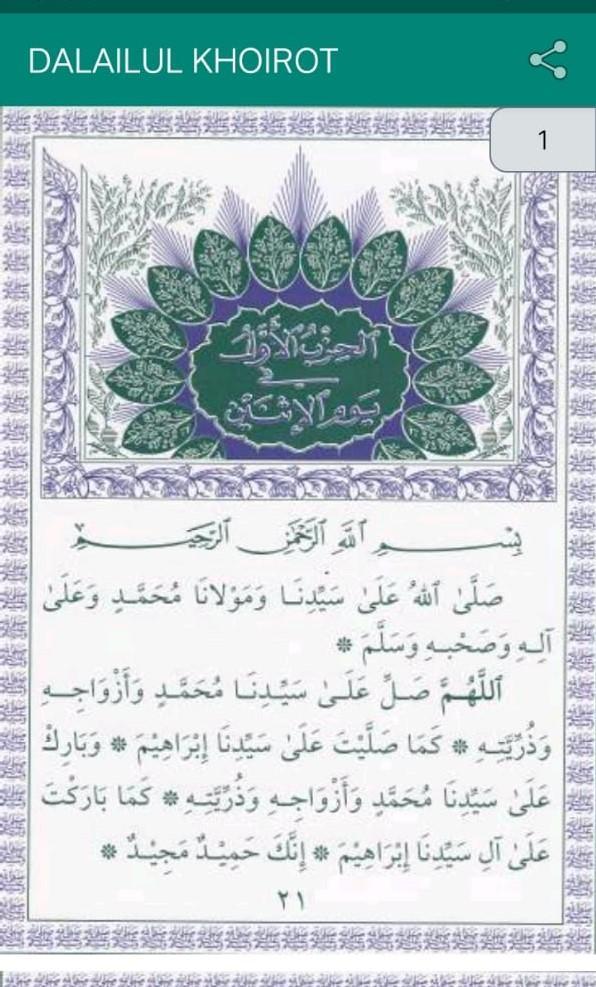 DALAILUL KHOIROT
1
ٱلْحِزْبُ ٱلْأَوَّلُ
فِي
يَوْمِ ٱلْإِثْنَيْنِ
بِسْمِ ٱللَّهِ ٱلرَّحْمَٰنِ ٱلرَّحِيمِ
صَلَّىٰ ٱللهُ عَلَىٰ سَيِّدِنَا وَمَوْلَانَا مُحَمَّدٍ وَعَلَىٰ
آلِهِ وَصَحْبِهِ وَسَلَّمَ ❊
ٱللَّهُمَّ صَلِّ عَلَىٰ سَيِّدِنَا مُحَمَّدٍ وَأَزْوَاجِهِ
وَذُرِّيَّتِهِ ❊ كَمَا صَلَّيْتَ عَلَىٰ سَيِّدِنَا إِبْرَاهِيْمَ ❊ وَبَارِكْ
عَلَىٰ سَيِّدِنَا مُحَمَّدٍ وَأَزْوَاجِهِ وَذُرِّيَّتِهِ ❊ كَمَا بَارَكْتَ
عَلَىٰ آلِ سَيِّدِنَا إِبْرَاهِيْمَ ❊ إِنَّكَ حَمِيْدٌ مَجِيْدٌ ❊
٢١